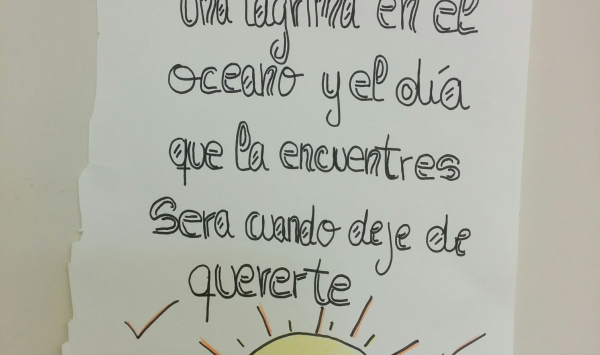 una lagrima en el
oceano y el día
que la encuentres
Sera cuando deje de
quererte